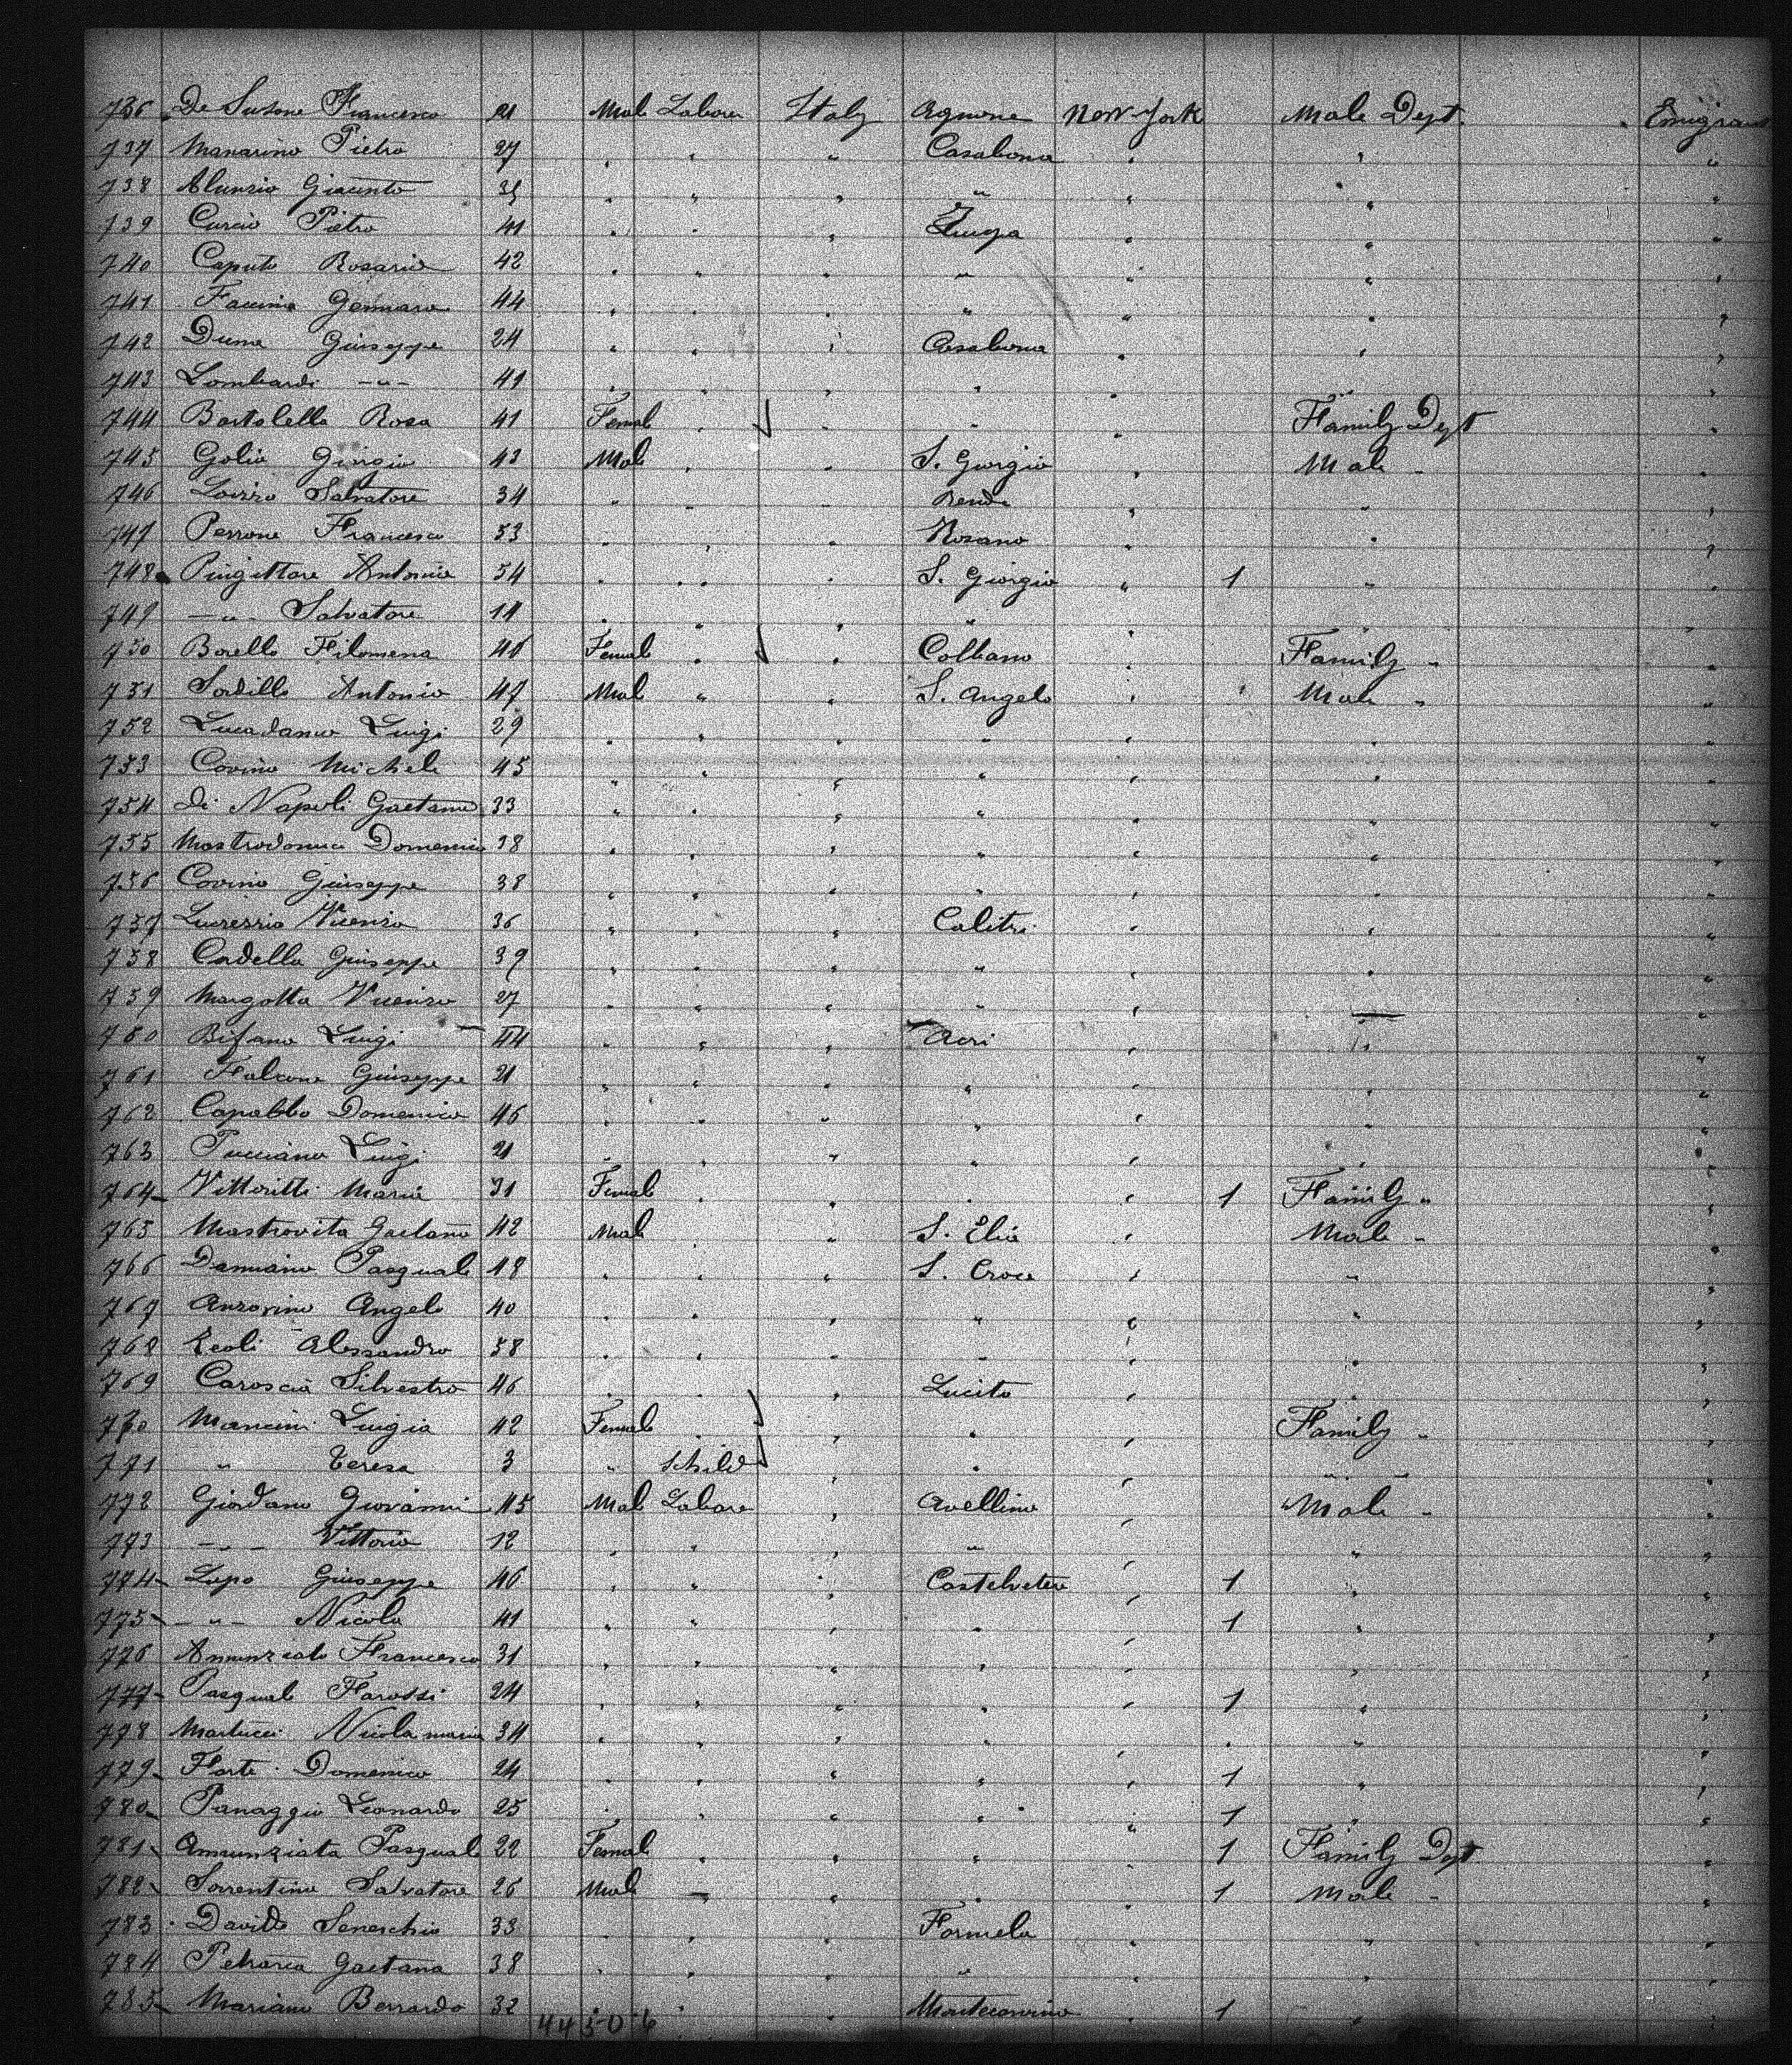 736 De Francesco 21 Male Labore Italy Agnone New-York Male Dept. Emigrant
737 Manarino Pietro 27 " " " Casabona " " "
738 Giacinto " " " " " " "
739 Curcio Pietro 41 " " " " " "
740 Caputo Rosario 42 " " " " " " "
741 Gennaro 44 " " " " " " "
742 Giuseppe 24 " " " Casabona " " "
743 Lombardi -"- 41 " " " " " " "
744 Bartolella Rosa 41 Female " " " " Family Dept "
745 Golia Giorgio 43 Male " " S. Giorgio " Male " "
746 Salvatore 34 " " " Rende " " "
747 Perrone Francesco 53 " " " Rosano " " "
748 Pingittore Antonio 54 " " " S. Giorgio " 1 " "
749 -"- Salvatore " " " " " " "
750 Borello Filomena 46 Female " " Colliano " Family " "
751 Sordillo Antonio 47 Male " " S. Angelo " Male " "
752 Lucadamo Luigi 29 " " " " " " "
753 Covino Michele 45 " " " " " " "
754 Di Napoli Gaetano 33 " " " " " " "
755 Domenico 38 " " " " " " "
756 Covino Giuseppe 38 " " " " " " "
757 Vicenzo 36 " " " Calitri " " "
758 Cadella Giuseppe 39 " " " " " " "
759 Margotta Vicenzo 27 " " " " " " "
760 Bifano Luigi 44 " " " Acri " " "
761 Falcone Giuseppe 21 " " " " " " "
762 Capalbo Domenico 46 " " " " " " "
763 Luigi 21 " " " " " " "
764 Vittoritti Maria 31 Female " " " " 1 Family " "
765 Mastrovita Gaetano 42 Male " " S. Elia " Male " "
766 Damiano Pasquale 18 " " " S. Croce " " "
767 Anzovino Angelo 40 " " " " " " "
768 Leoli Alessandro 58 " " " " " " "
769 Caroscia Silvestro 46 " " " Lucito " " "
770 Mancini Luigia 42 Female " " " " Family " "
771 " Teresa 3 " schild " " " " "
772 Giordano Giovanni 45 Male Labore " Avellino " Male " "
773 -"- Vittorio 12 " " " " " " "
774 Lupo Giuseppe 46 " " " Castelvetere " 1 " "
775 -"- Nicola 41 " " " " " 1 " "
776 Annunziato Francesco 31 " " " " " " "
777 Pasquale 24 " " " " " 1 " "
778 Martucci Nicolamaria 34 " " " " " " "
779 Forte Domenico 24 " " " " " 1 " "
780 Panaggio Leonardo 25 " " " " " 1 " "
781 Annunziata Pasquale 22 Female " " " " 1 Family Dept. "
782 Sorrentino Salvatore 26 Male " " " " 1 Male " "
783 Davide 33 " " " Formela " " "
784 Gaetana 38 " " " " " " "
785 Mariano Berrardo 32 " " Montecorvino " 1 " "